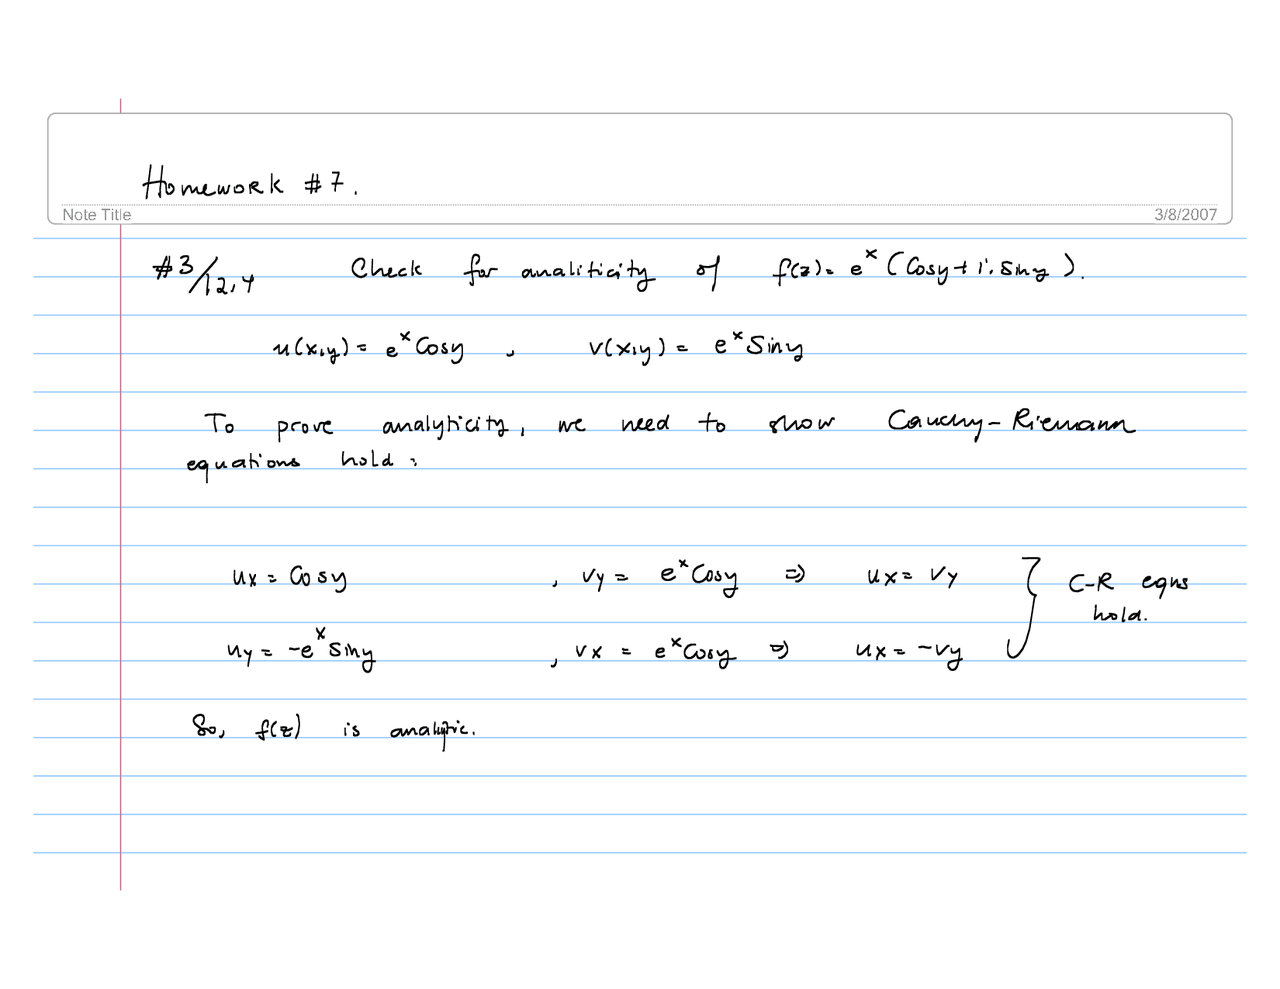 Homework #7.
Note Title
3/8/2007
#3/12.4 Check for analiticity of f(z)= e^x (Cosy + i. Siny).
u(x,y) = e^x Cosy , v(x,y) = e^x Siny
To prove analyticity, we need to show Cauchy-Riemann
equations hold:
ux = Cosy , vy = e^x Cosy ⇒ ux = vy } C-R eqns
hold.
uy = -e^x Siny , vx = e^x Cosy ⇒ ux = -vy
So, f(z) is analytic.